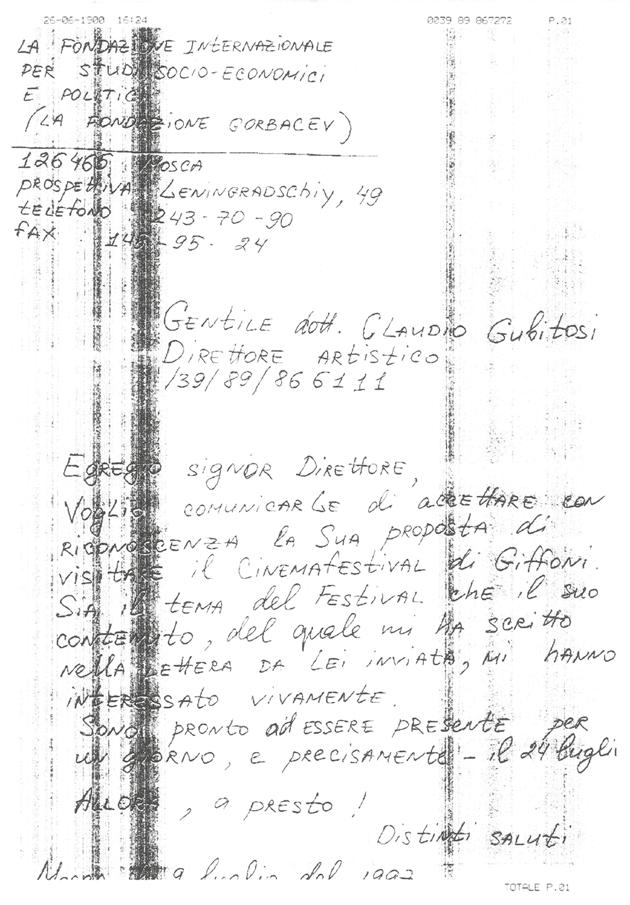 26-06-1900 16:24 0039 89 867272 P.01
LA FONDAZIONE INTERNAZIONALE
PER STUDI SOCIO-ECONOMICI
E POLITICI
(LA FONDAZIONE GORBACEV)
126465 MOSCA
PROSPETTIVA LENINGRADSChiy, 49
telefono 243-70-90
fax 145-95-24
GENTILE dott. CLAUDIO Gubitosi
DIRETTORE ARTISTICO
/39/89/866111
EGREGIO SIGNOR DIRETTORE,
VOGLIO COMUNICARLE di ACCETTARE CON
RICONOSCENZA LA SUA PROPOSTA di
VISITARE il CINEMAFESTIVAL di Giffoni.
SIA il TEMA del FESTIVAL che il suo
CONTENUTO, del quale mi HA SCRITTO
NELLA LETTERA DA LEI INVIATA, MI HANNO
INTERESSATO VIVAMENTE.
SONO PRONTO ad ESSERE PRESENTE per
UN GIORNO, e PRECISAMENTE - il 24 lugli
ALLORA, a PRESTO!
DISTINTI SALUTI
9 luglio del
TOTALE P.01